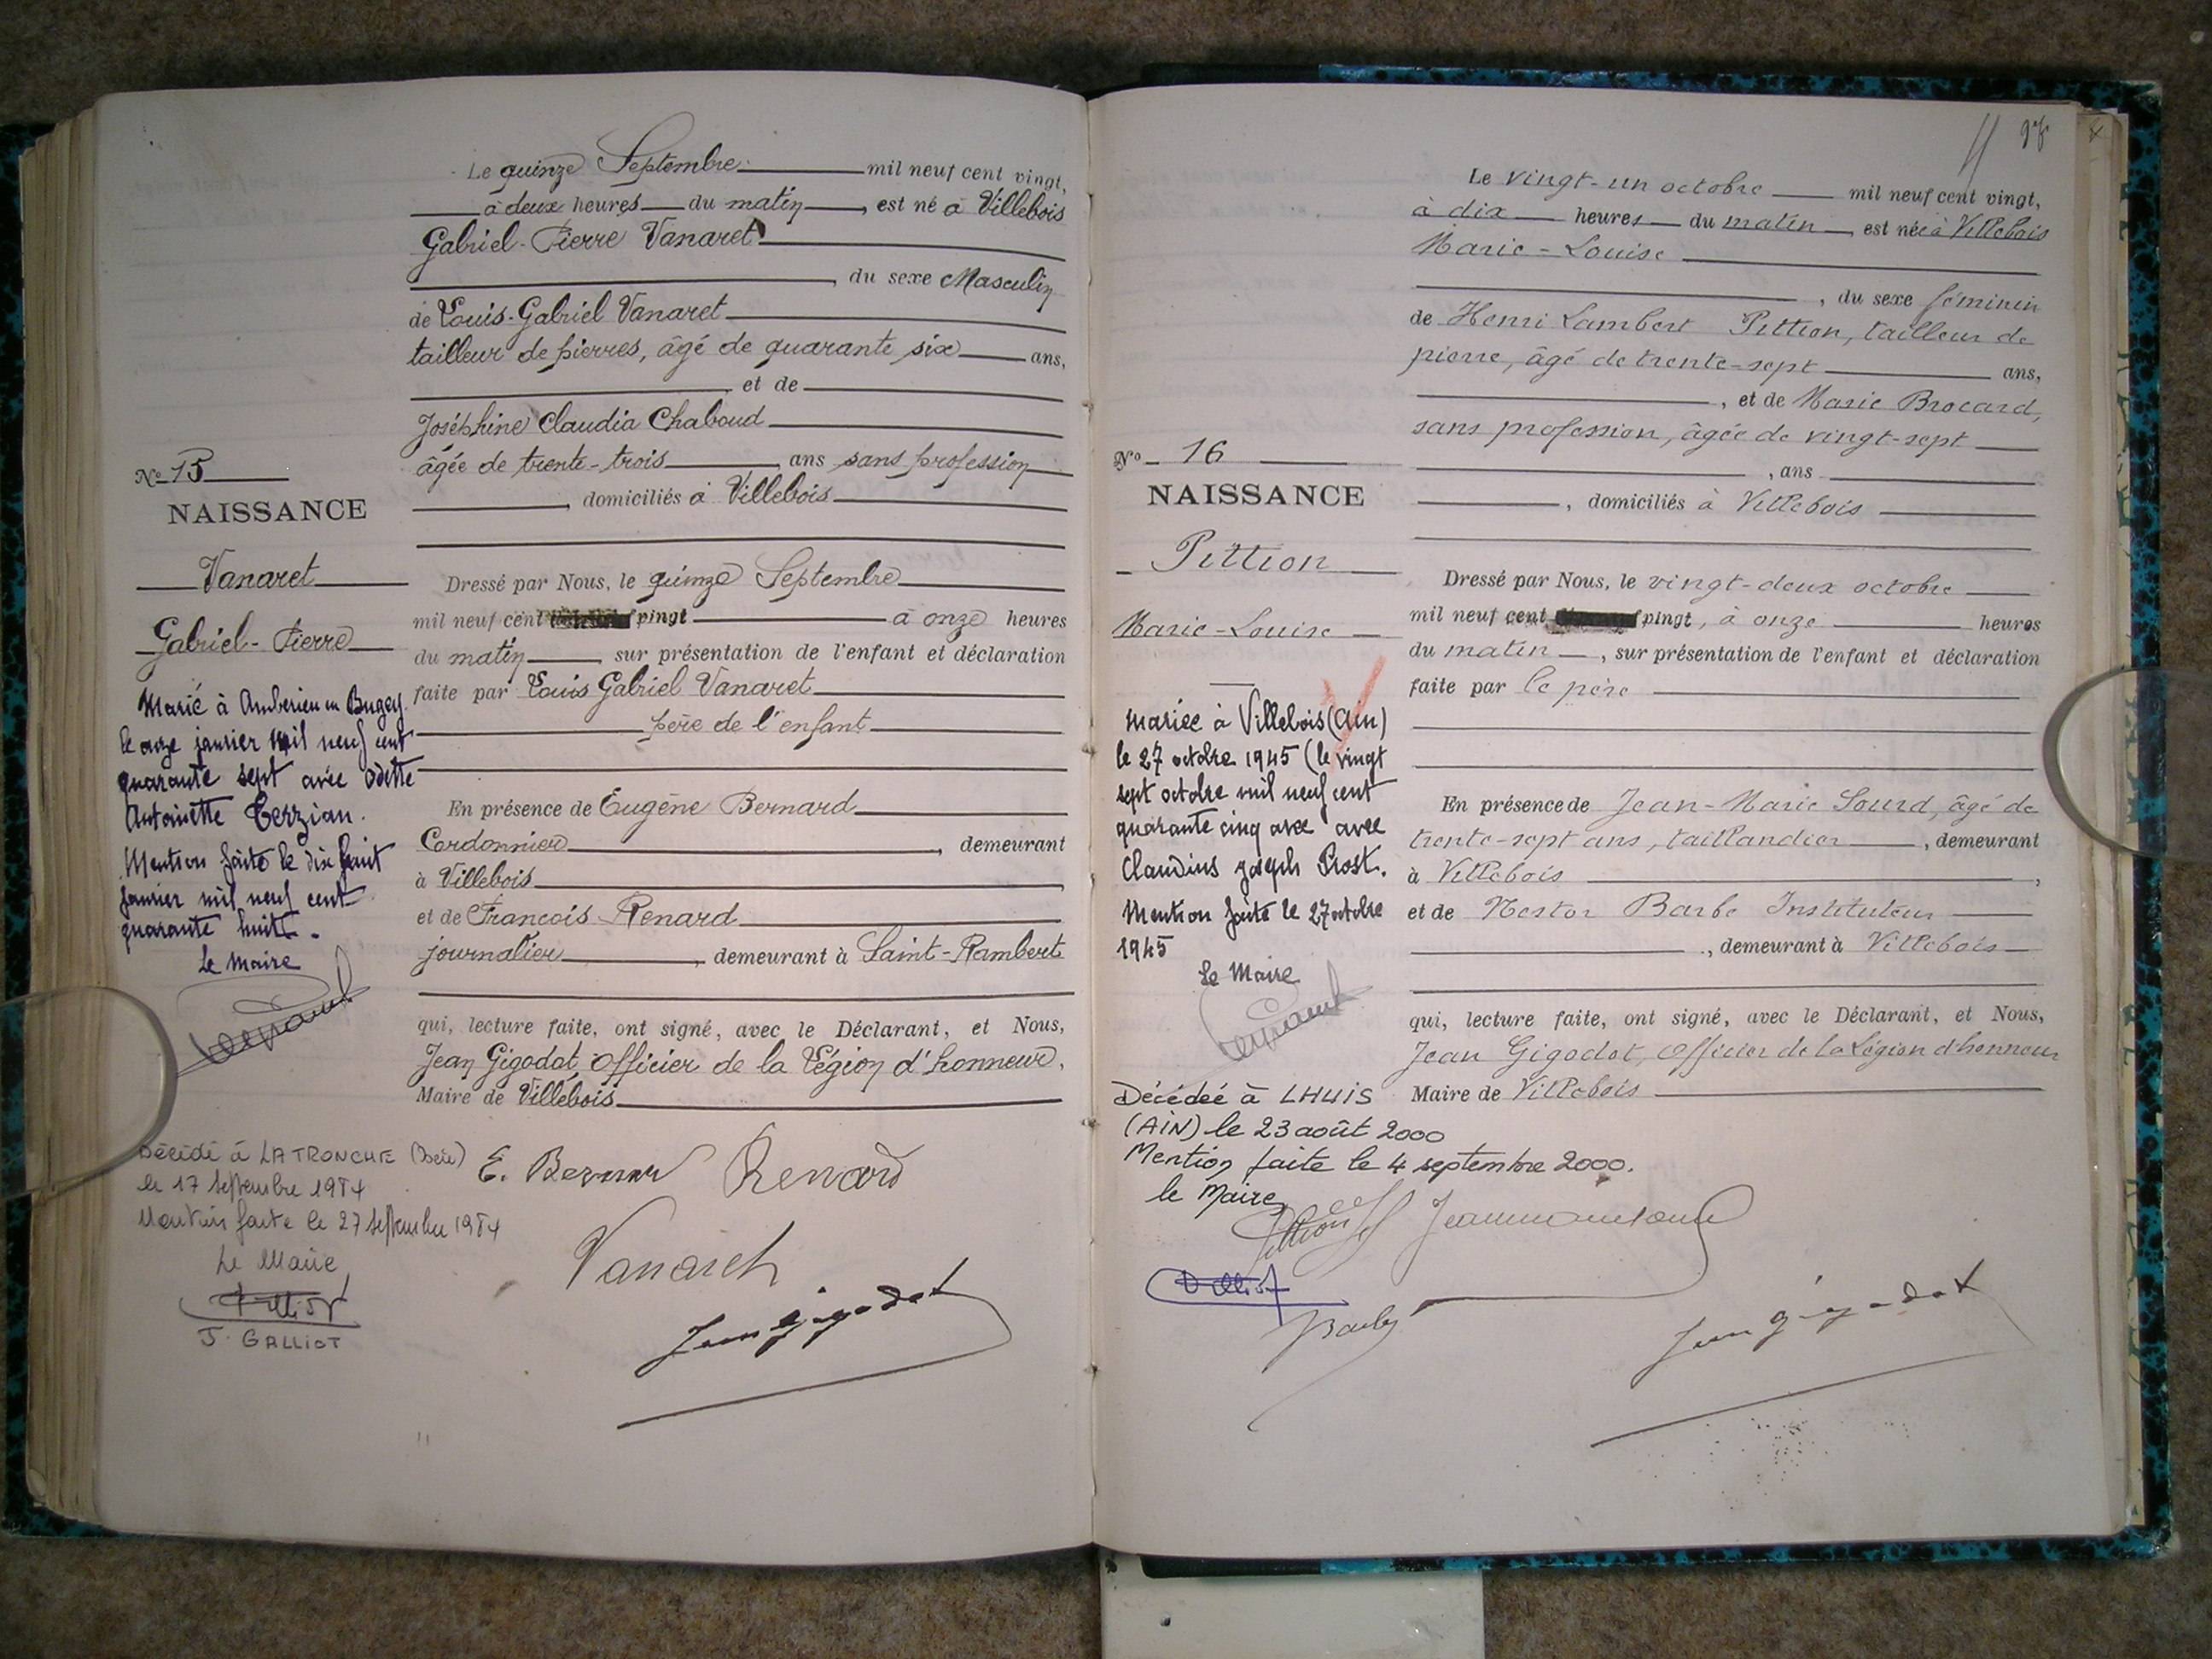 Le quinze Septembre mil neuf cent vingt,
à deux heures du matin, est né à Villebois
Gabriel-Pierre Vanaret
, du sexe Masculin
de Louis-Gabriel Vanaret
tailleur de pierres, âgé de quarante six ans,
et de
Joséphine Claudia Chaboud
âgée de trente-trois ans sans profession
, domiciliés à Villebois
No 15
NAISSANCE
Vanaret
Gabriel-Pierre
Dressé par Nous, le quinze Septembre
mil neuf cent vingt à onze heures
du matin, sur présentation de l'enfant et déclaration
faite par Louis Gabriel Vanaret
père de l'enfant
En présence de Eugène Bernard
Cordonnier, demeurant
à Villebois
et de François Renard
journalier, demeurant à Saint-Rambert
qui, lecture faite, ont signé, avec le Déclarant, et Nous,
Jean Gigodot, Officier de la Légion d'honneur,
Maire de Villebois
Marié à Ambérieu en Bugey
le onze janvier mil neuf cent
quarante sept avec Odette
Antoinette Terzian.
Mention faite le dix huit
janvier mil neuf cent
quarante huit.
Le Maire
Décédé à LA TRONCHE (Isère)
le 17 septembre 1984
Mention faite le 27 septembre 1984
Le Maire
J. GALLIOT
E. Bernard Renard
Vanaret
Jean Gigodot
98
Le vingt-un octobre mil neuf cent vingt,
à dix heures du matin, est née à Villebois
Marie-Louise
, du sexe féminin
de Henri Lambert Pittion, tailleur de
pierre, âgé de trente-sept ans,
, et de Marie Brocard,
sans profession, âgée de vingt-sept
, ans
, domiciliés à Villebois
No 16
NAISSANCE
Pittion
Marie-Louise
Dressé par Nous, le vingt-deux octobre
mil neuf cent vingt, à onze heures
du matin, sur présentation de l'enfant et déclaration
faite par le père
En présence de Jean-Marie Sourd, âgé de
trente-sept ans, taillandier, demeurant
à Villebois,
et de Nestor Barbe Instituteur
, demeurant à Villebois
qui, lecture faite, ont signé, avec le Déclarant, et Nous,
Jean Gigodot, Officier de la Légion d'honneur
Maire de Villebois
Mariée à Villebois (Ain)
le 27 octobre 1945 (le vingt
sept octobre mil neuf cent
quarante cinq avec avec
Claudius Joseph Prost.
Mention faite le 27 octobre
1945
Le Maire
Décédée à LHUIS
(AIN) le 23 août 2000
Mention faite le 4 septembre 2000.
le Maire
Pittion
Barbe
Jean Gigodot